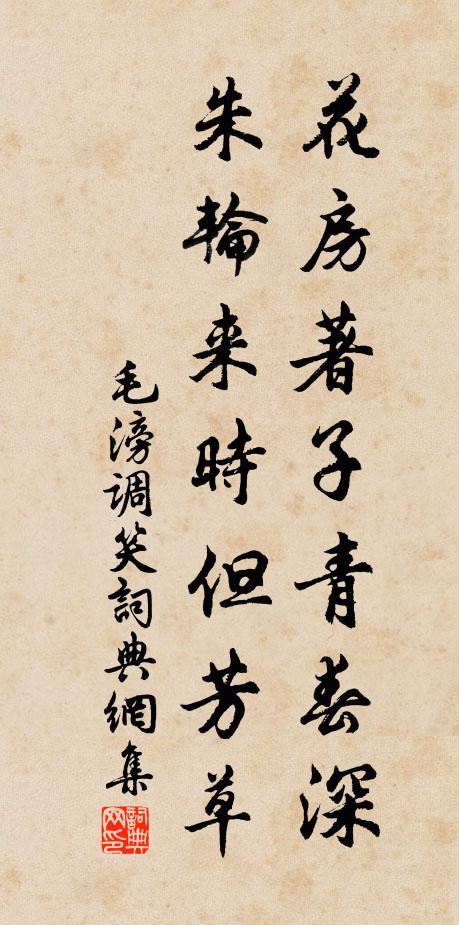 花房著子青春深
朱輪来時但芳草
毛滂調笑詞典網集
詞典网印